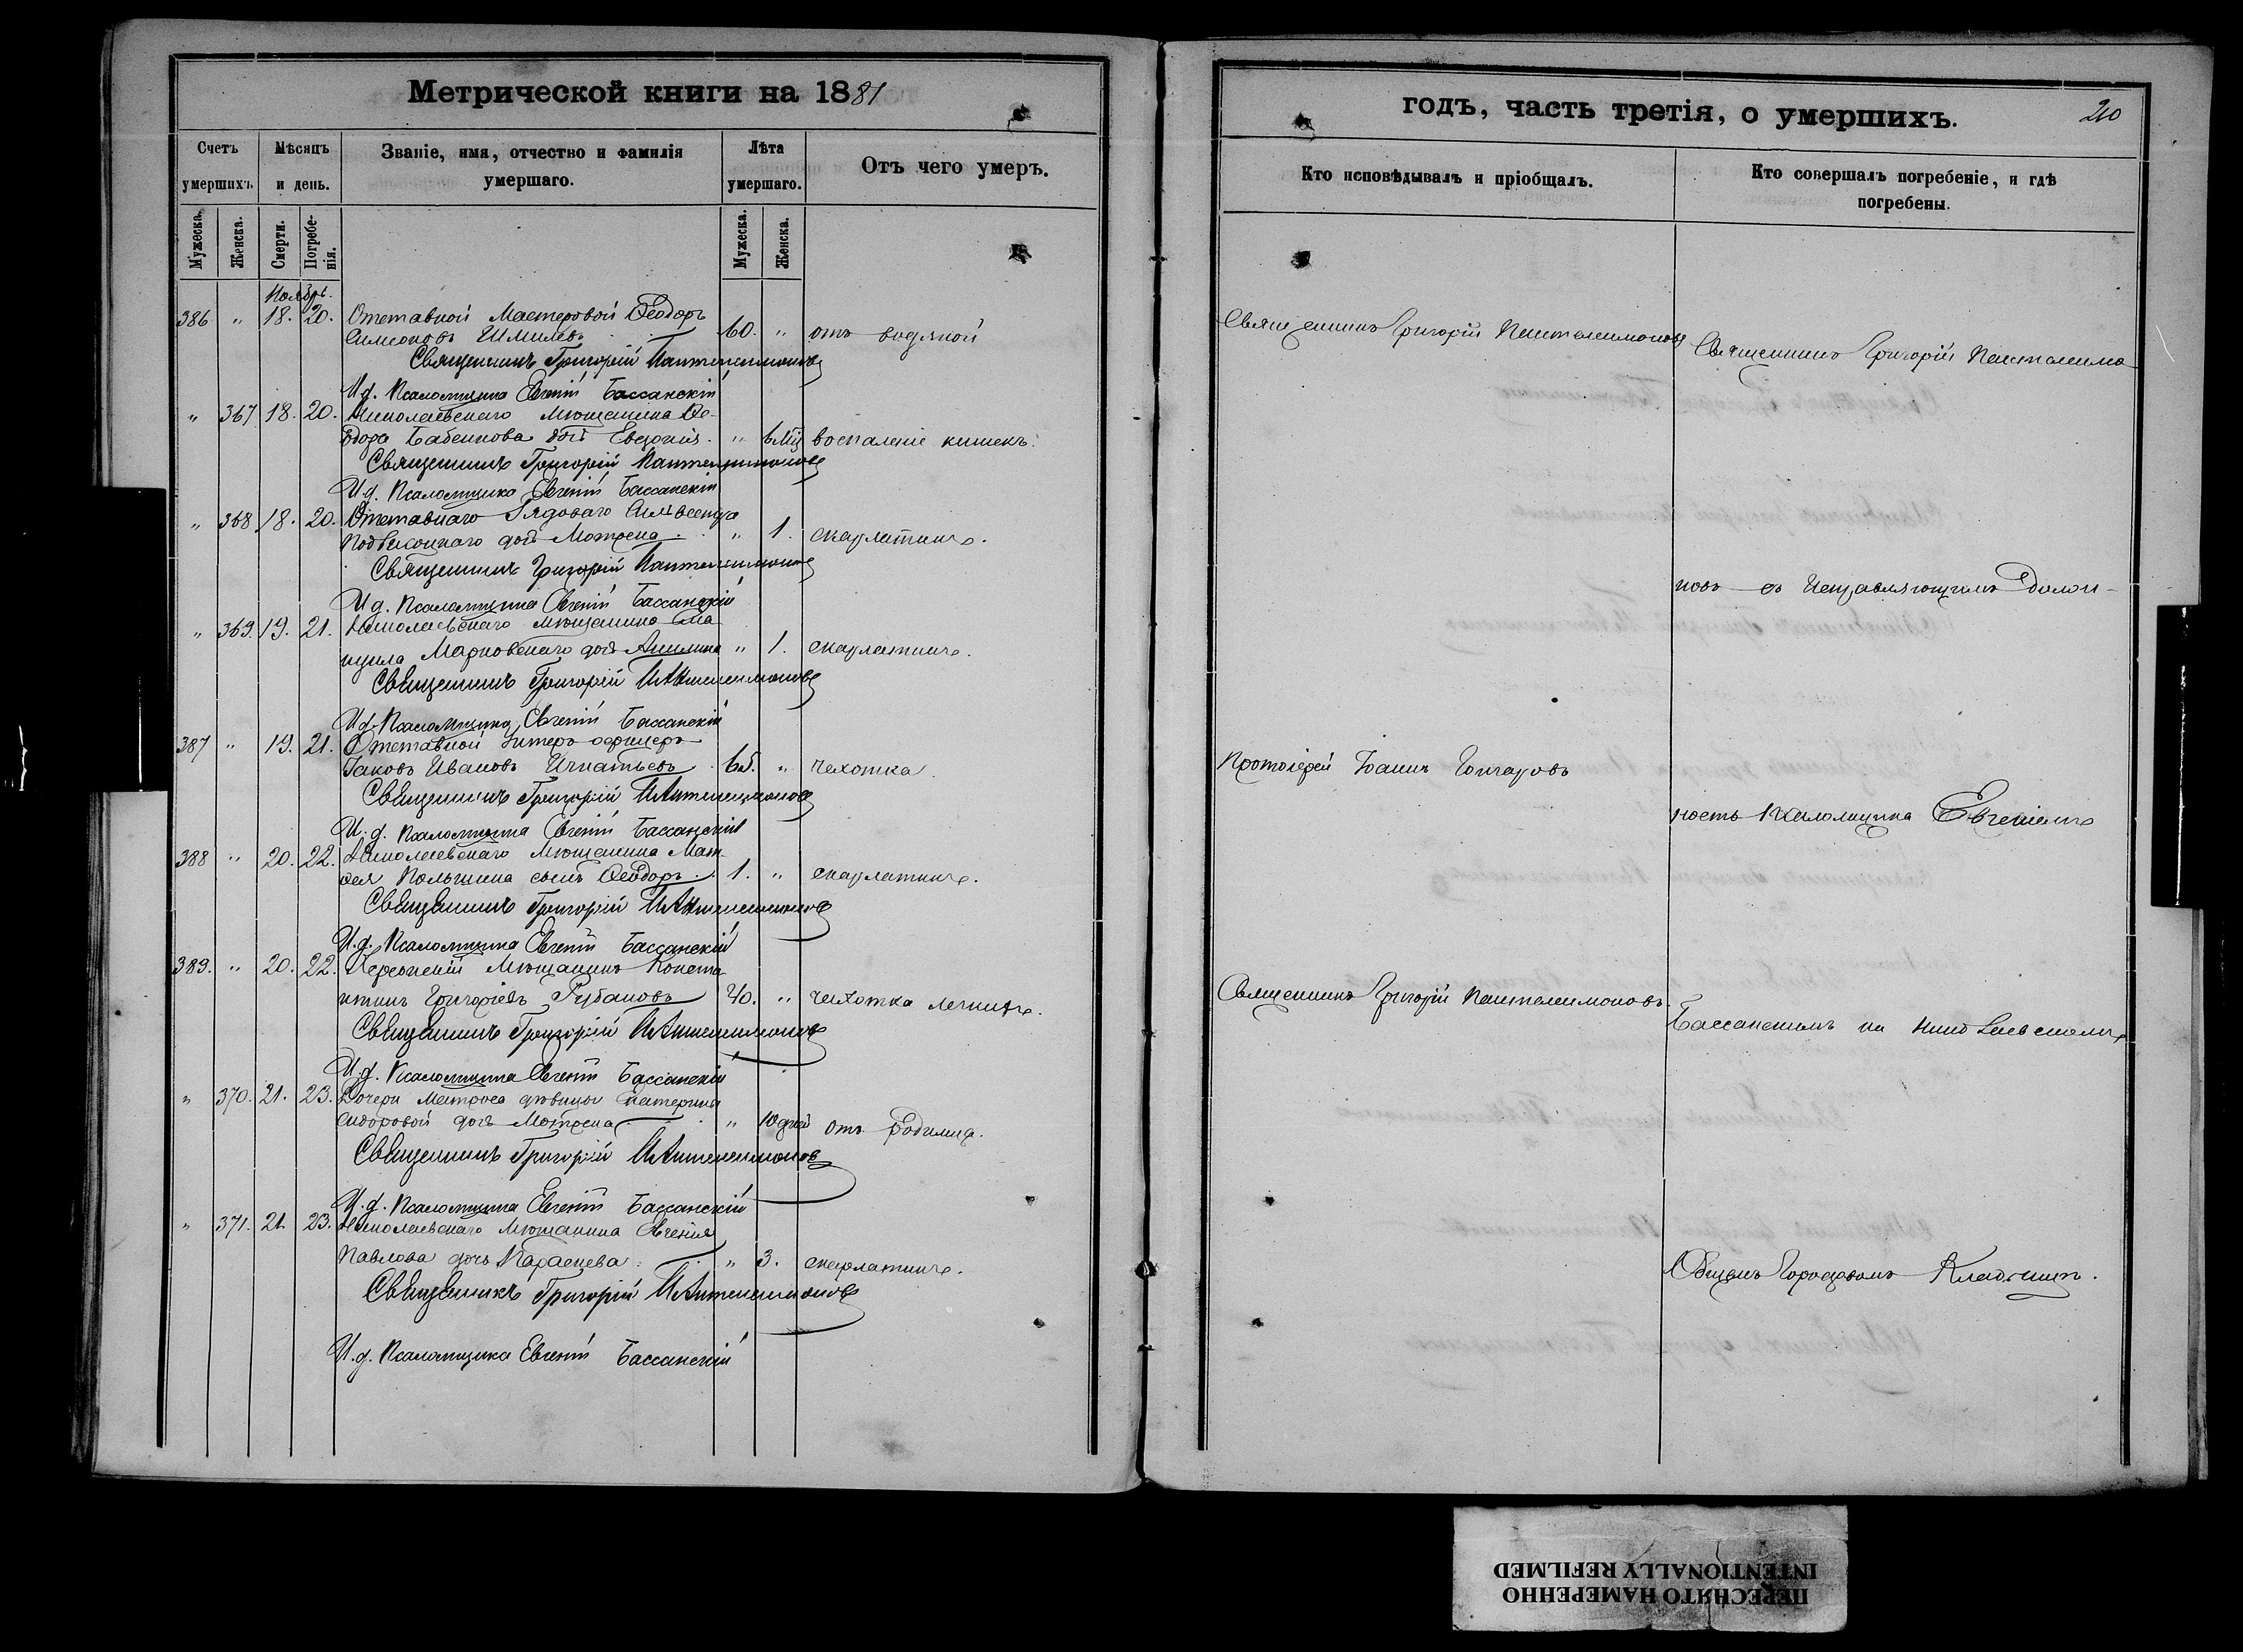 Метрической книги на 1881
Счетъ умершихъ.
Мѣсяцъ и день.
Званіе, имя, отчество и фамилія умершаго.
Лѣта умершаго.
Отъ чего умеръ.
Мужеска.
Женска.
Смерти.
Погребенія.
Мужеска.
Женска.
Ноябрь.
386 " 18. 20. Отставной Мастеровой Ѳеодоръ
Симеоновъ 60. " отъ водяной
Священникъ Григорій Пантелеимоновъ
И.д. Псаломщика Евгеній Бассанскій
" 367 18. 20. Николаевскаго Мѣщанина Ѳе-
одора Бабенкова дочь Евдокія. " 6 мѣц воспаленіе кишекъ.
Священникъ Григорій Пантелеимоновъ
И.д. Псаломщика Евгеній Бассанскій
" 368 18. 20. Отставнаго Рядоваго Сильвестра
дочь Мотрона. " 1. скарлатины.
Священникъ Григорій Пантелеимоновъ
И.д. Псаломщика Евгеній Бассанскій
" 369. 19. 21. Николаевскаго Мѣщанина Ема
нуила Марковскаго дочь " 1. скарлатины.
Священникъ Григорій Пантелеимоновъ
И.д. Псаломщика Евгеній Бассанскій
387 " 19. 21. Отставной Унтеръ офицеръ
Іаковъ Ивановъ Игнатьевъ 65. " чехотка.
Священникъ Григорій Пантелеимоновъ
И.д. Псаломщика Евгеній Бассанскій
388 " 20. 22. Николаевскаго Мѣщанина Мат-
ѳея сынъ Ѳеодоръ. 1. " скарлатины.
Священникъ Григорій Пантелеимоновъ
И.д. Псаломщика Евгеній Бассанскій
389. " 20. 22. Херсонскій Мѣщанинъ Конста
нтинъ Григоріевъ Рубановъ 40. " чехотка легкихъ.
Священникъ Григорій Пантелеимоновъ
И.д. Псаломщика Евгеній Бассанскій
" 370. 21. 23. Дочери Матроса дѣвицы Екатерины
Сидоровой дочь Мотрона " 10 дней отъ родимца.
Священникъ Григорій Пантелеимоновъ
И.д. Псаломщика Евгеній Бассанскій
" 371. 21. 23. Николаевскаго Мѣщанина Евгенія
Павлова дочь Параскева. " 3. скарлатины.
Священникъ Григорій Пантелеимоновъ
И.д. Псаломщика Евгеній Бассанскій
годъ, часть третія, о умершихъ.
210
Кто исповѣдывалъ и пріобщалъ.
Кто совершалъ погребеніе, и гдѣ погребены.
Священникъ Григорій Пантелеимоновъ
Священникъ Григорій Пантелеимо
новъ съ Исправляющимъ Должн-
Протоіерей Іоаннъ Гончаровъ
ность Псаломщика Евгеніемъ
Священникъ Григорій Пантелеимоновъ.
Бассанскимъ на Николаевскомъ
Общемъ Городовомъ Кладбищѣ.
ПЕРЕСНЯТО НАМЕРЕННО
INTENTIONALLY REFILMED